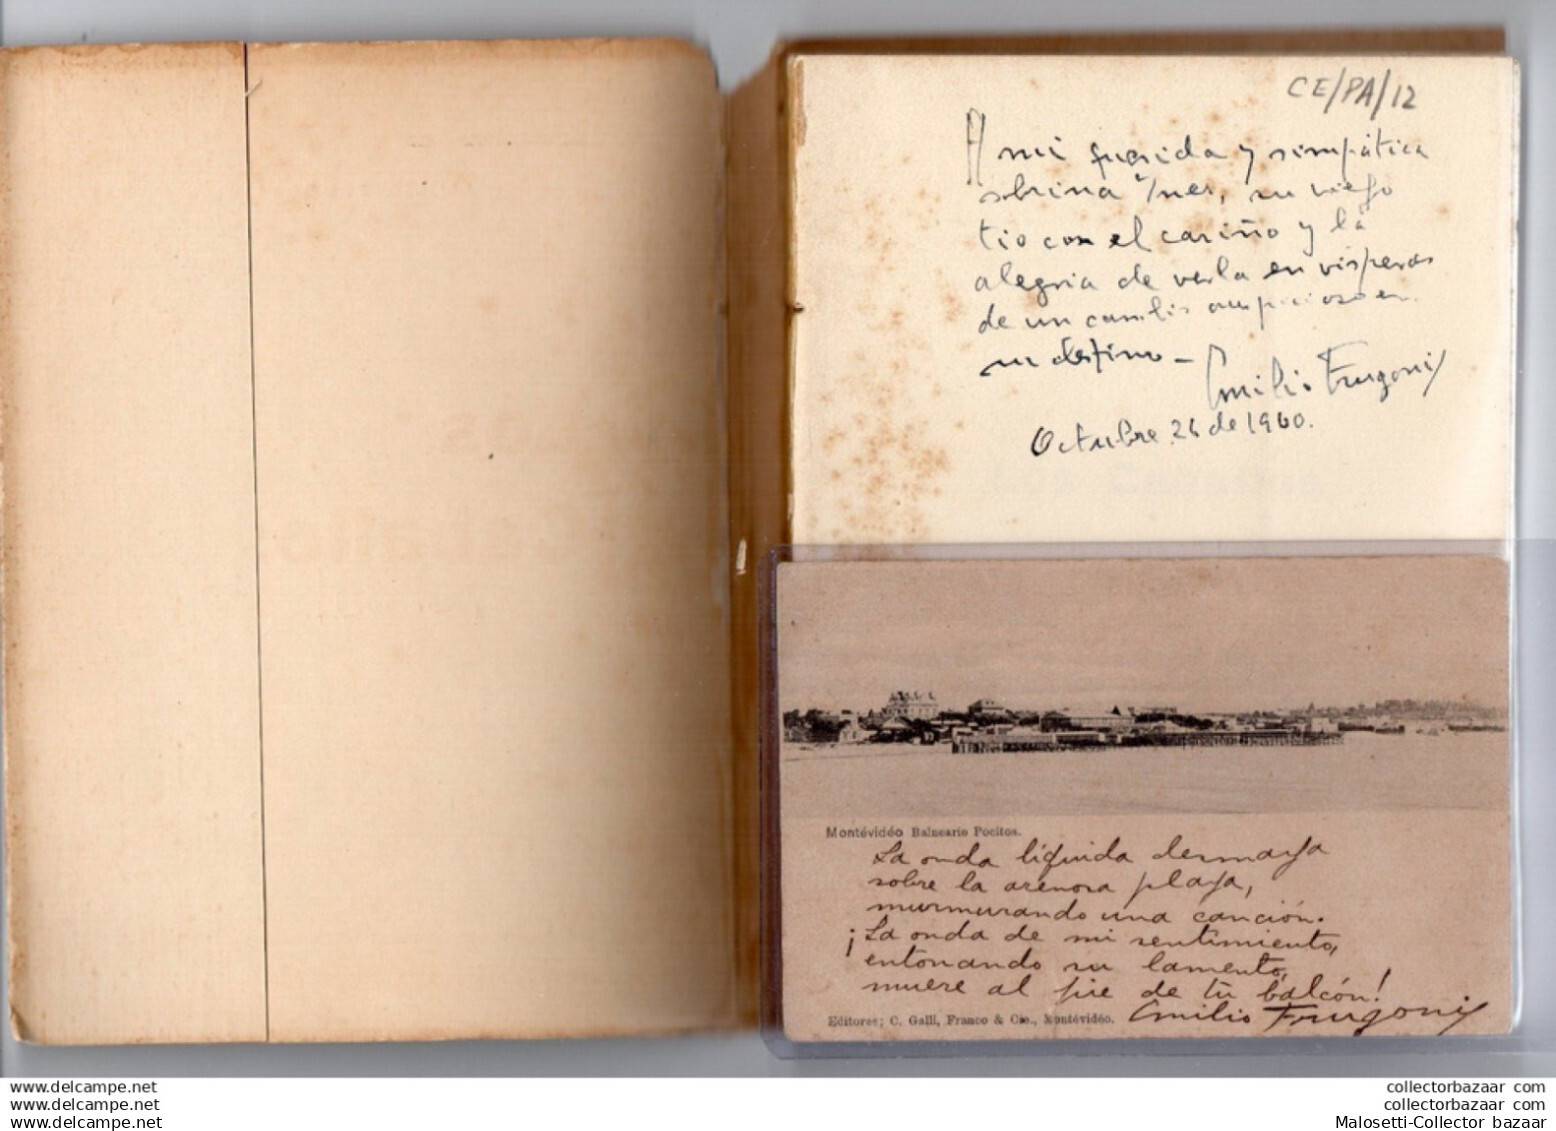 CE/PA/12
A mi querida y simpática
sobrina Ines, su viejo
tio con el cariño y la
alegria de verla en visperas
de un cambio auspicioso en
su destino –
Emilio Frugoni
Octubre 26 de 1960.
Montévidéo Balneario Pocitos.
La onda líquida desmaya
sobre la arenosa playa,
murmurando una canción.
¡La onda de mi sentimiento,
entonando su lamento,
muere al pie de tu balcón!
Editores; C. Galli, Franco & Cie., Montévidéo.
Emilio Frugoni
www.delcampe.net
www.delcampe.net
www.delcampe.net
collectorbazaar com
collectorbazaar com
Malosetti-Collector bazaar